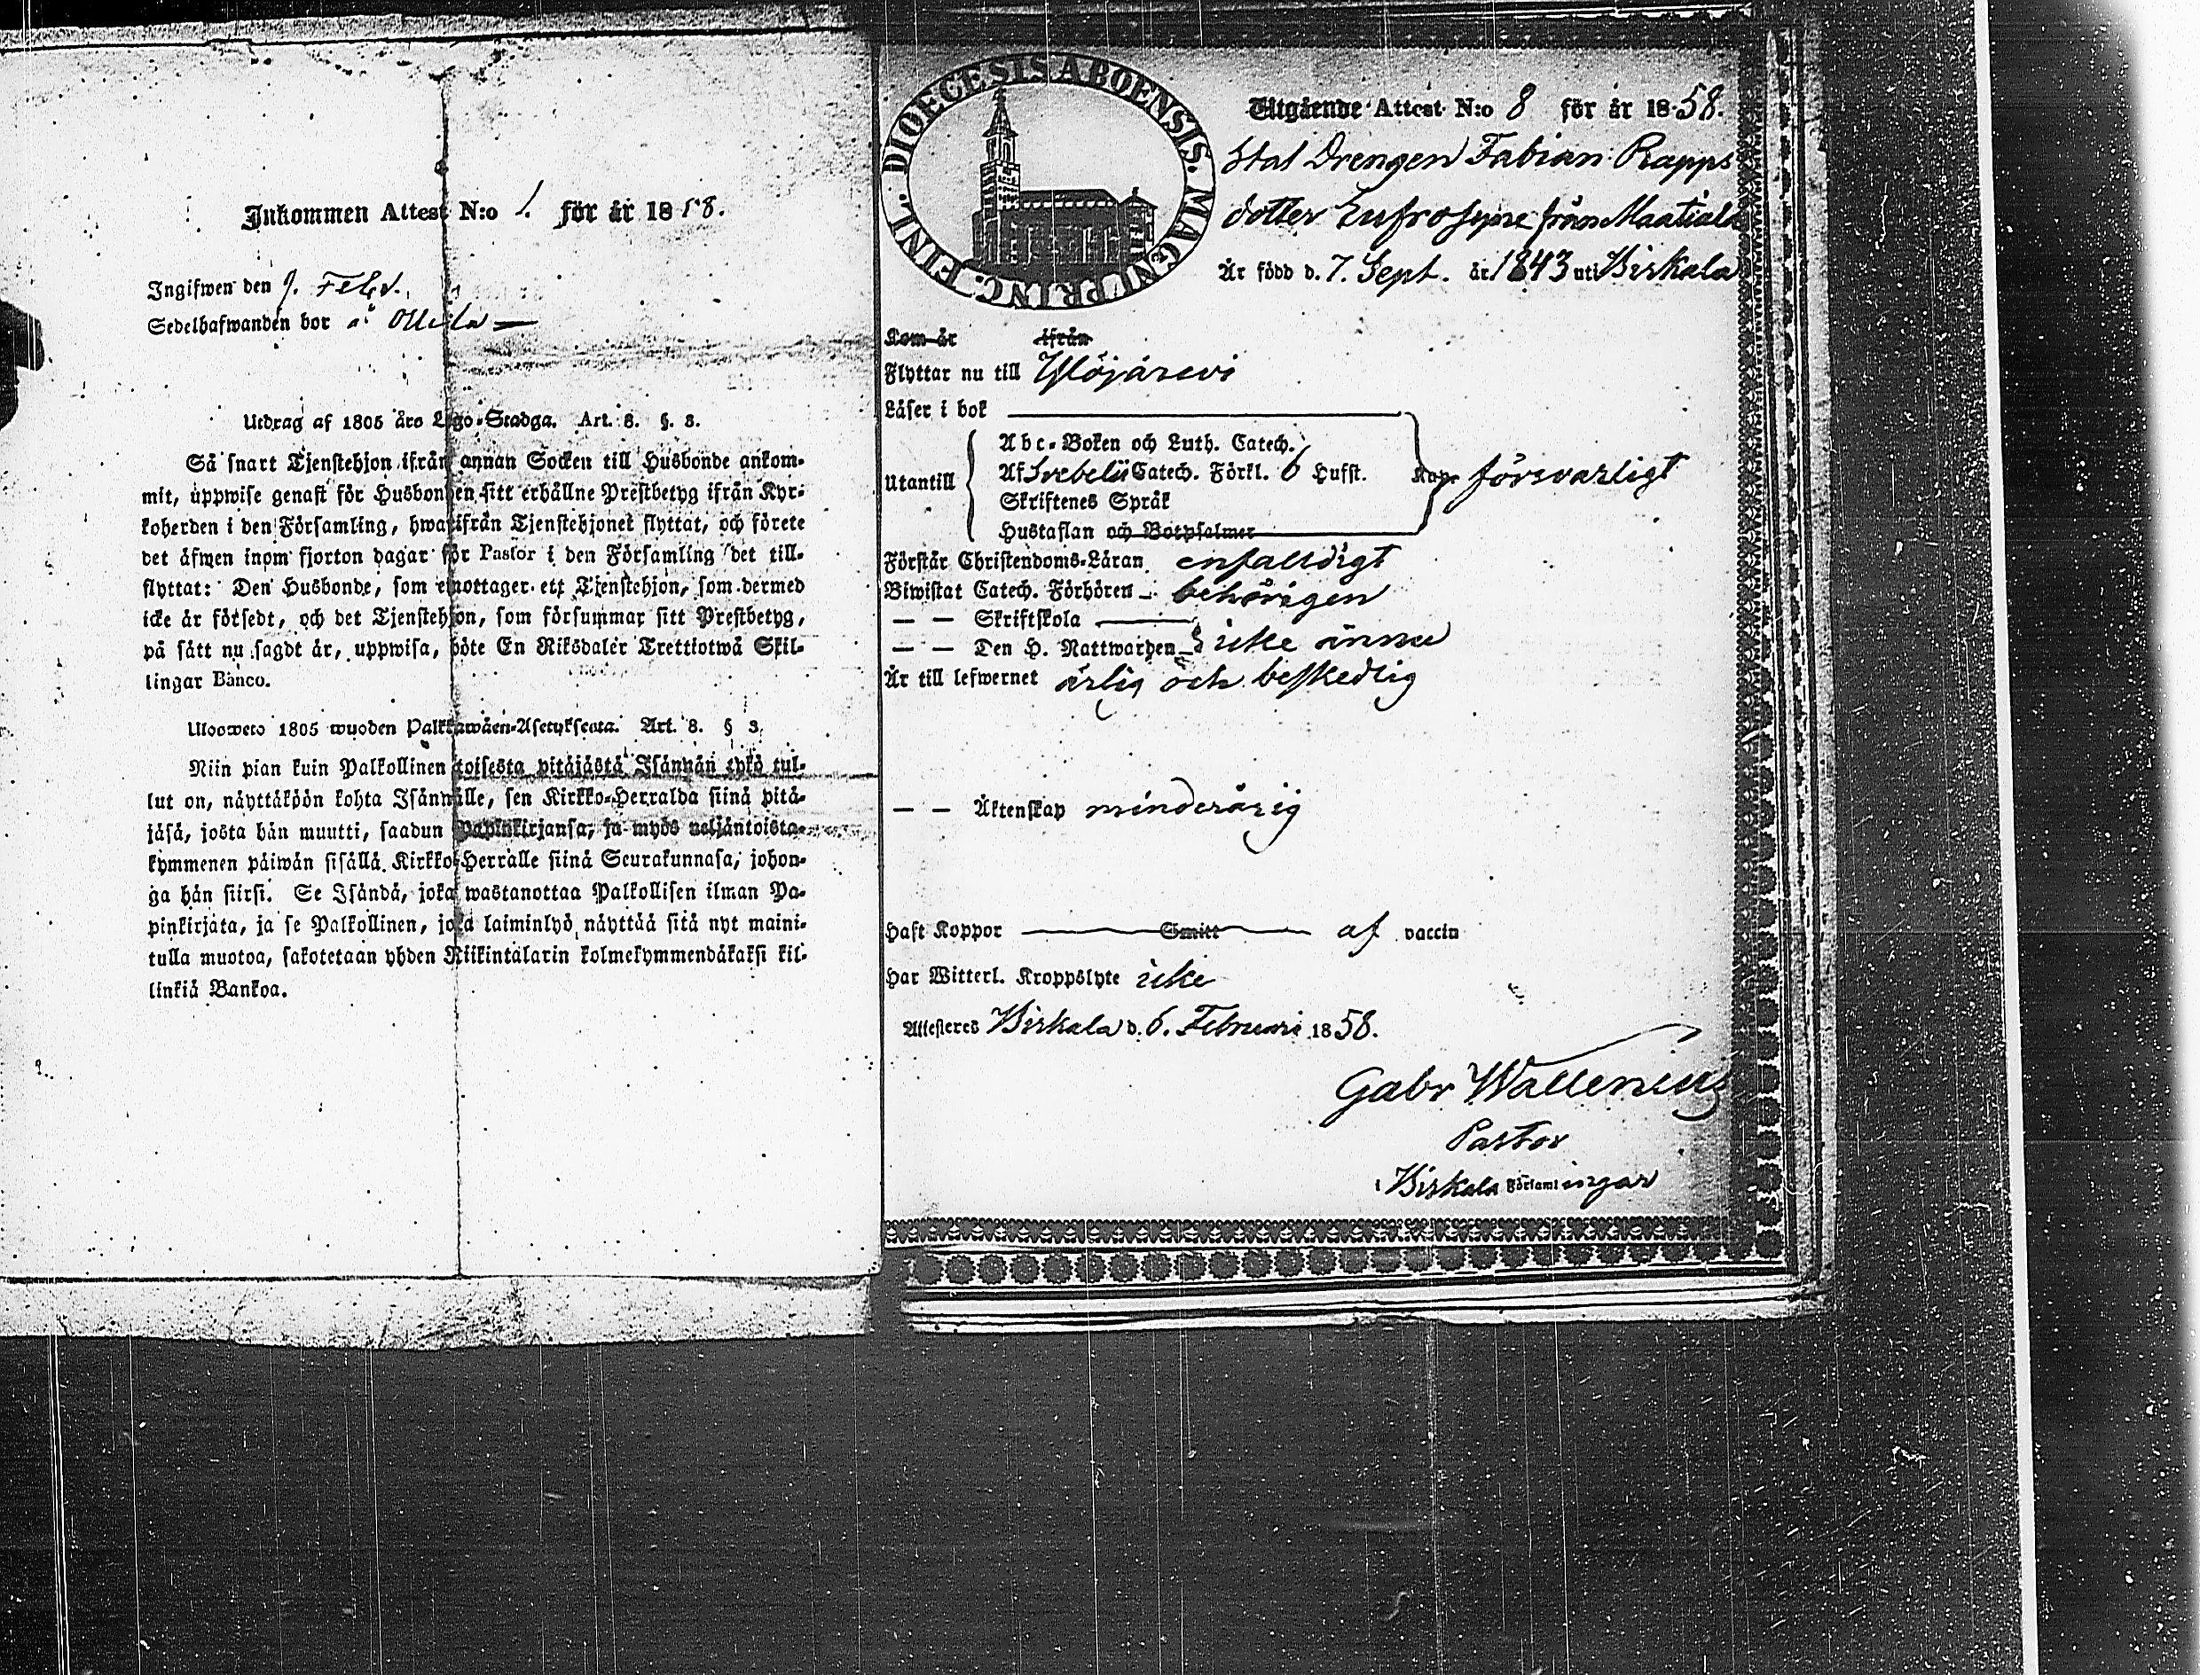 Inkommen Attest N:o 1. för år 1858.
Ingifwen den 9. Febr.
Sedelhafwanden bor å Ollila
Utdrag af 1805 års Lego-Stadga. Art. 8. §. 3.
Så snart Tjenstehjon ifrån annan Socken till Husbonde ankom-
mit, uppwise genast för Husbonden sitt erhållne Prestbetyg ifrån Kyr-
koherden i den Församling, hwarifrån Tjenstehjonet flyttat, och förete
det äfwen inom fjorton dagar för Pastor i den Församling det till-
flyttat: Den Husbonde, som emottager ett Tjenstehjon, som dermed
icke är försedt, och det Tjenstehjon, som försummar sitt Prestbetyg,
på sätt nu sagdt är, uppwisa, böte En Riksdaler Trettiotwå Skil-
lingar Banco.
Ulosweto 1805 wuoden Palkkawäen-Asetuksesta. Art. 8. § 3.
Niin pian kuin Palkollinen toisesta pitäjästä Isännän tykö tul-
lut on, näyttäköön kohta Isännälle, sen Kirkko-Herralda siinä pitä-
jäsä, josta hän muutti, saadun Papinkirjansa, ja myös neljäntoista-
kymmenen päiwän sisällä Kirkko-Herralle siinä Seurakunnasa, johon-
ga hän siirsi. Se Isändä, joka wastanottaa Palkollisen ilman Pa-
pinkirjata, ja se Palkollinen, joka laiminlyö näyttää sitä nyt maini-
tulla muotoa, sakotetaan yhden Riikintalarin kolmekymmendäkaksi kil-
linkiä Bankoa.
DIOECESIS ABOENSIS. MAGNI PRINC. FINL.
Utgående Attest N:o 8 för år 1858.
Stat Drengen Fabian Rapps
dotter Eufrosyne från Maatiala
Är född d. 7. Sept. år 1843 uti Birkala
Kom år ifrån
Flyttar nu till Ylöjärvi
Läser i bok
Abc-Boken och Luth. Catech.
Utantill Af Svebelii Catech. Förkl. 6 Hufst. försvarligt
Skriftenes Språk
Hustaflan och Botpsalmer
Förstår Christendoms-Läran enfalldigt
Biwistat Catech. Förhören behörigen
— — Skriftskola
— — Den H. Nattwarden icke ännu
Är till lefwernet ärlig och beskedlig
— — Äktenskap minderårig
Haft Koppor Smitt af vaccin
Har Witterl. Kroppslyte icke
Attesteres Birkala d. 6. Februari 1858.
Gabr Wallenius
Pastor
i Birkala Församlingar